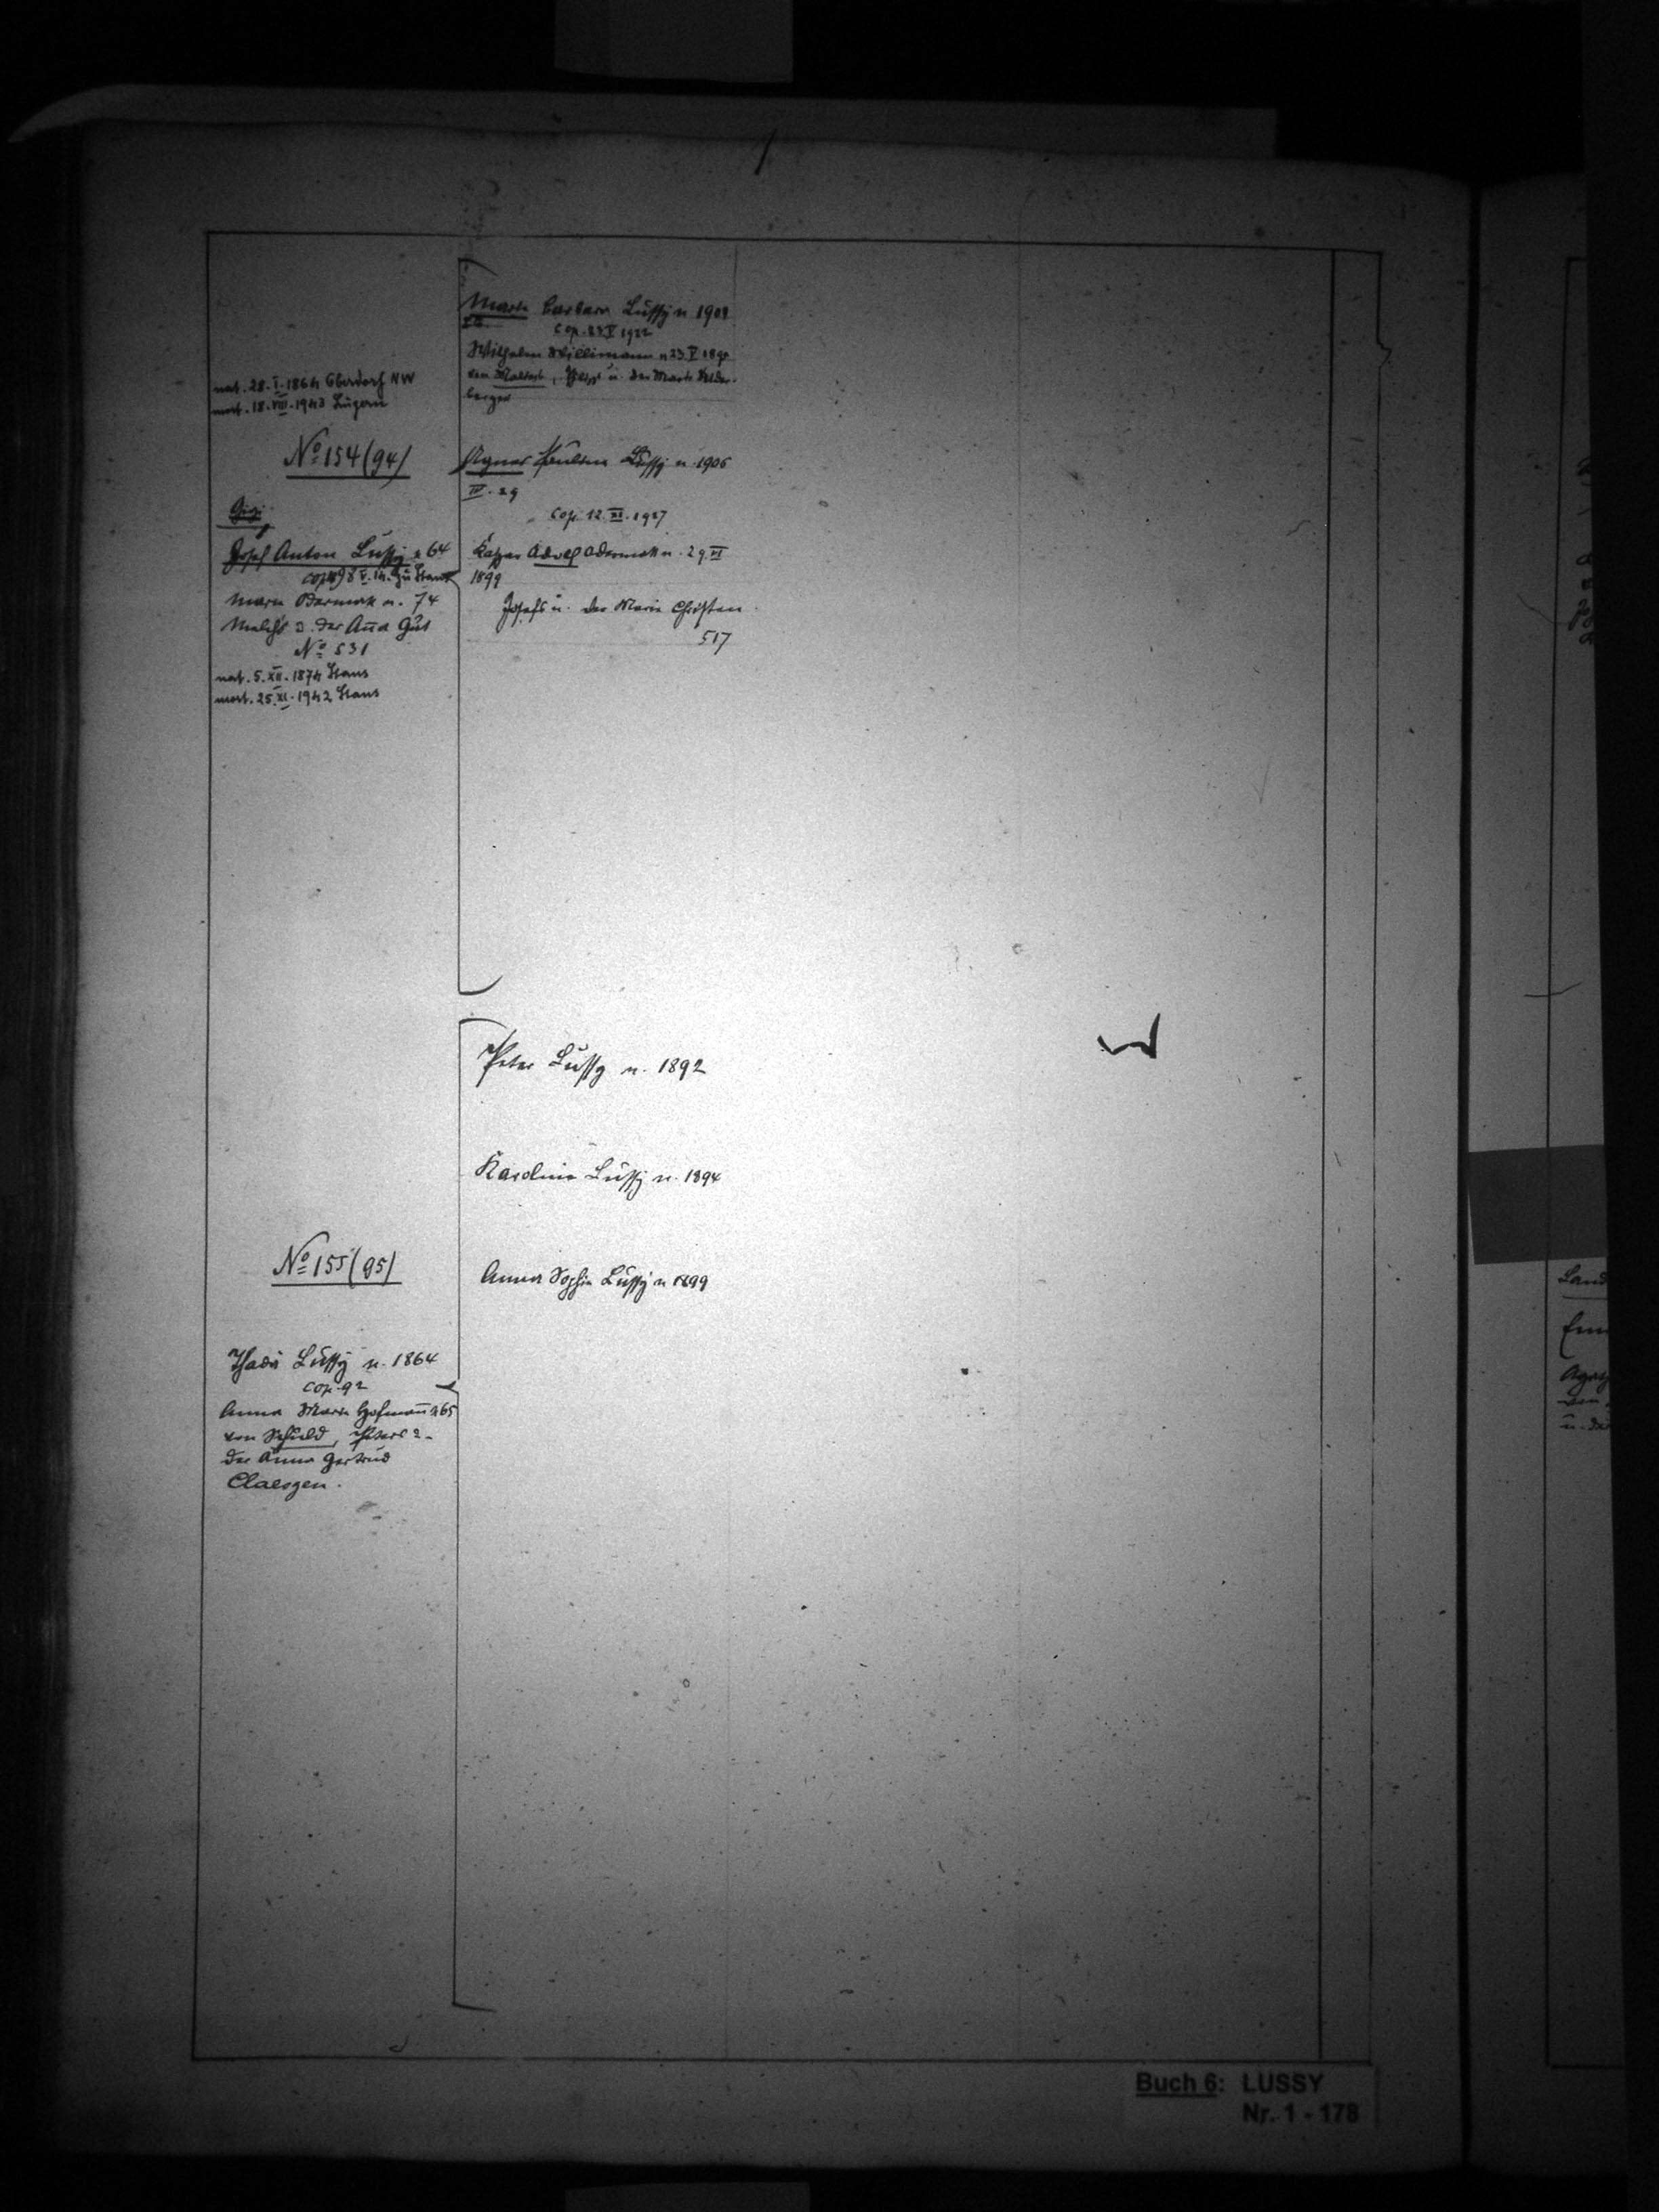 nat. 28.I.1864 Oberdorf NW
mort. 18.VIII.1943 Luzern
No 154 (94)
Josef Anton Lussy n 64
cop 98 V.14. zu Stans
Maria Odermatt n. 74
Melch's u. der Anna Gut
No 531
nat. 5.XII.1874 Stans
mort. 25.XI.1942 Stans
Marie Barbara Lussy n 1901
cop. 23 V 1922
Wilhelm Willimann n 23.V 189
von Malters, u. der Marie
berger
Agnes Paulina Lussy n. 1906
IV. 29
cop. 12.XI.1927
Kaspar Adolf Odermatt n. 29 VI
1899
Josefs u. der Marie Christen
517
Peter Lussy n. 1892
Karolina Lussy n. 1894
No 155 (95)
Anna Sophia Lussy n 1899
Thadä Lussy n. 1864
cop. 92
Anna Maria Hofmann n 65
von Schuld, Peters u.
der Anna Gertrud
Claesgen.
Land
Buch 6: LUSSY
Nr. 1 - 178